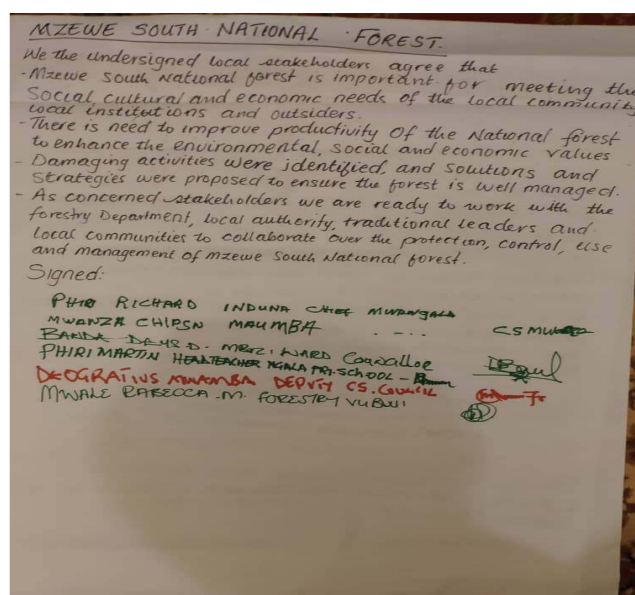 MZEWE SOUTH NATIONAL FOREST.
We the undersigned local stakeholders agree that
- Mzewe South National forest is important for meeting the
Social, cultural and economic needs of the local community
local institutions and outsiders.
- There is need to improve productivity of the National forest
to enhance the environmental, social and economic values
- Damaging activities were identified, and solutions and
strategies were proposed to ensure the forest is well managed.
- As concerned stakeholders we are ready to work with the
forestry Department, local authority, traditional leaders and
local communities to collaborate over the protection, control, use
and management of mzewe South National forest.
Signed:
PHIRI RICHARD INDUNA CHIEF
MWANZA MAUMBA
BANDA DAVID. WARD
PHIRI MARTIN HEADTEACHER PRI. SCHOOL -
DEOGRATIUS MWAMBA DEPUTY CS. COUNCIL
MWALE RABECCA .M. FORESTRY VUBWI